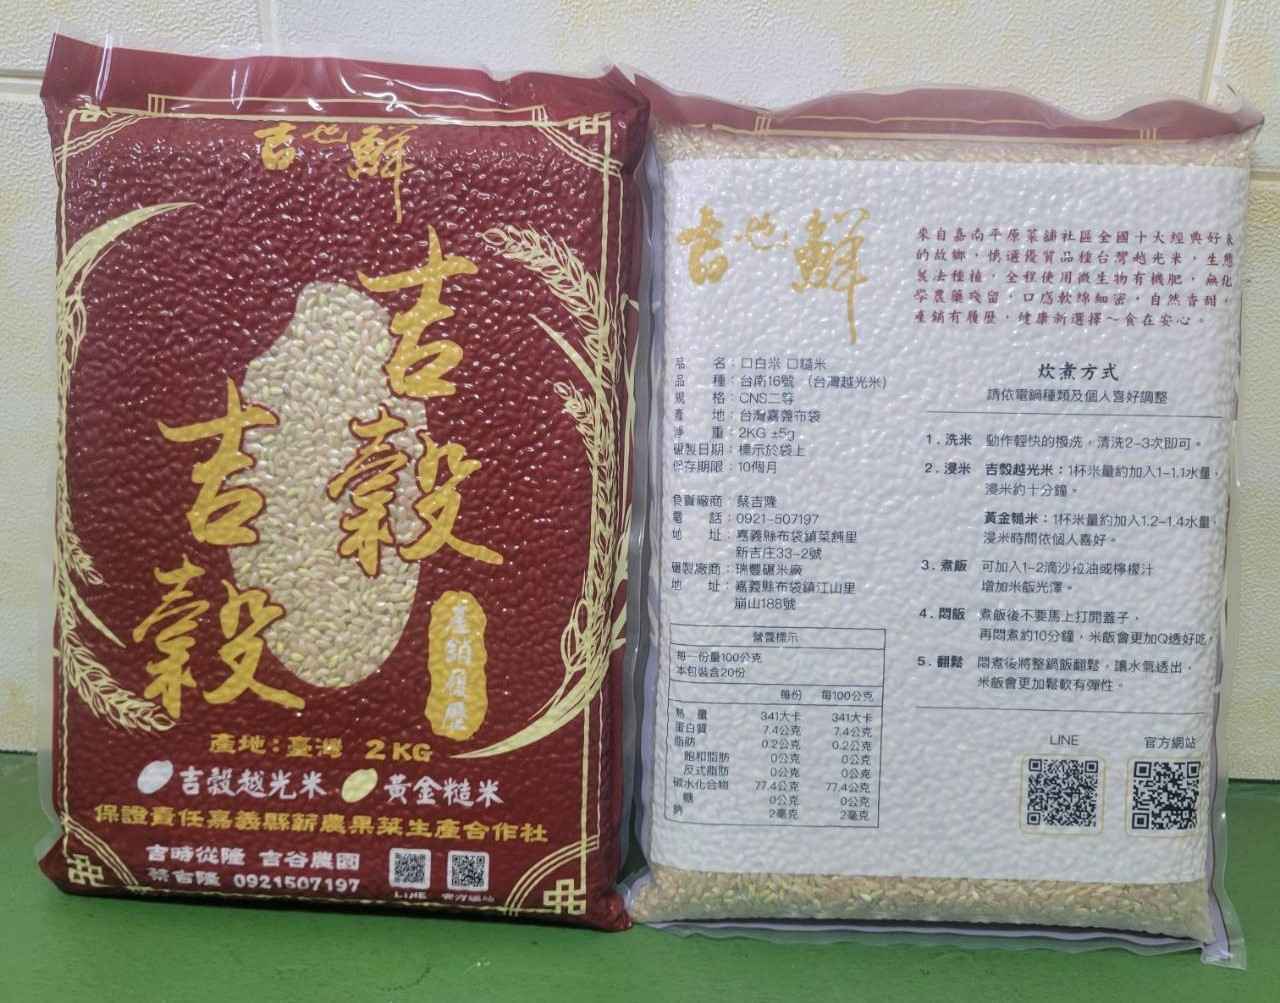 吉也鮮
吉穀
吉穀
產銷履歷
產地：臺灣 2KG
吉穀越光米 黃金糙米
保證責任嘉義縣新農果菜生產合作社
吉時從隆 吉谷農園
蔡吉隆 0921507197
LINE 官方網站
吉也鮮
來自嘉南平原菜舖社區全國十大經典好米
的故鄉，慎選優質品種台灣越光米，生態
農法種植，全程使用微生物有機肥，無化
學農藥殘留，口感軟綿細密，自然香甜，
產銷有履歷，健康新選擇～食在安心。
品 名：口白米 口糙米
品 種：台南16號 （台灣越光米）
規 格：CNS二等
產 地：台灣嘉義布袋
淨 重：2KG ±5g
碾製日期：標示於袋上
保存期限：10個月
負責廠商：蔡吉隆
電 話：0921-507197
地 址：嘉義縣布袋鎮菜舖里
新吉庄33-2號
碾製廠商：瑞豐碾米廠
地 址：嘉義縣布袋鎮江山里
崩山188號
營養標示
每一份量100公克
本包裝含20份
每份 每100公克
熱 量 341大卡 341大卡
蛋白質 7.4公克 7.4公克
脂肪 0.2公克 0.2公克
飽和脂肪 0公克 0公克
反式脂肪 0公克 0公克
碳水化合物 77.4公克 77.4公克
糖 0公克 0公克
鈉 2毫克 2毫克
炊煮方式
請依電鍋種類及個人喜好調整
1. 洗米 動作輕快的撥洗，清洗2-3次即可。
2. 浸米 吉穀越光米：1杯米量約加入1-1.1水量，
浸米約十分鐘。
黃金糙米：1杯米量約加入1.2-1.4水量，
浸米時間依個人喜好。
3. 煮飯 可加入1-2滴沙拉油或檸檬汁
增加米飯光澤。
4. 悶飯 煮飯後不要馬上打開蓋子，
再悶煮約10分鐘，米飯會更加Q透好吃，
5. 翻鬆 悶煮後將整鍋飯翻鬆，讓水氣透出，
米飯會更加鬆軟有彈性。
LINE 官方網站